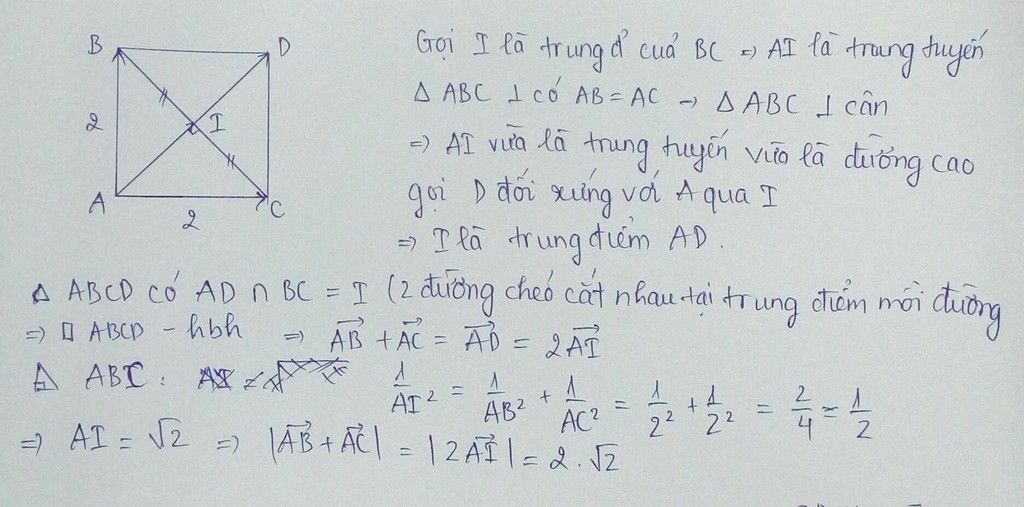 B D
Gọi I là trung đ' của BC => AI là trung tuyến
Δ ABC ⊥ có AB = AC → Δ ABC ⊥ cân
2 I
=> AI vừa là trung tuyến vừa là đường cao
A C
gọi D đối xứng với A qua I
2
=> I là trung điểm AD.
Δ ABCD có AD ∩ BC = I (2 đường chéo cắt nhau tại trung điểm mỗi đường
=> □ ABCD - hbh => \vec{AB} + \vec{AC} = \vec{AD} = 2\vec{AI}
Δ ABC : 1/AI² = 1/AB² + 1/AC² = 1/2² + 1/2² = 2/4 = 1/2
=> AI = √2 => |\vec{AB} + \vec{AC}| = |2\vec{AI}| = 2.√2